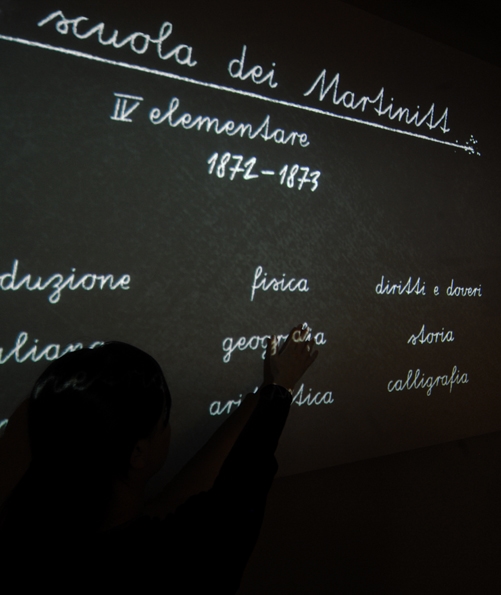 scuola dei Martinitt
IV elementare
1872-1873
duzione fisica diritti e doveri
liana storia
calligrafia